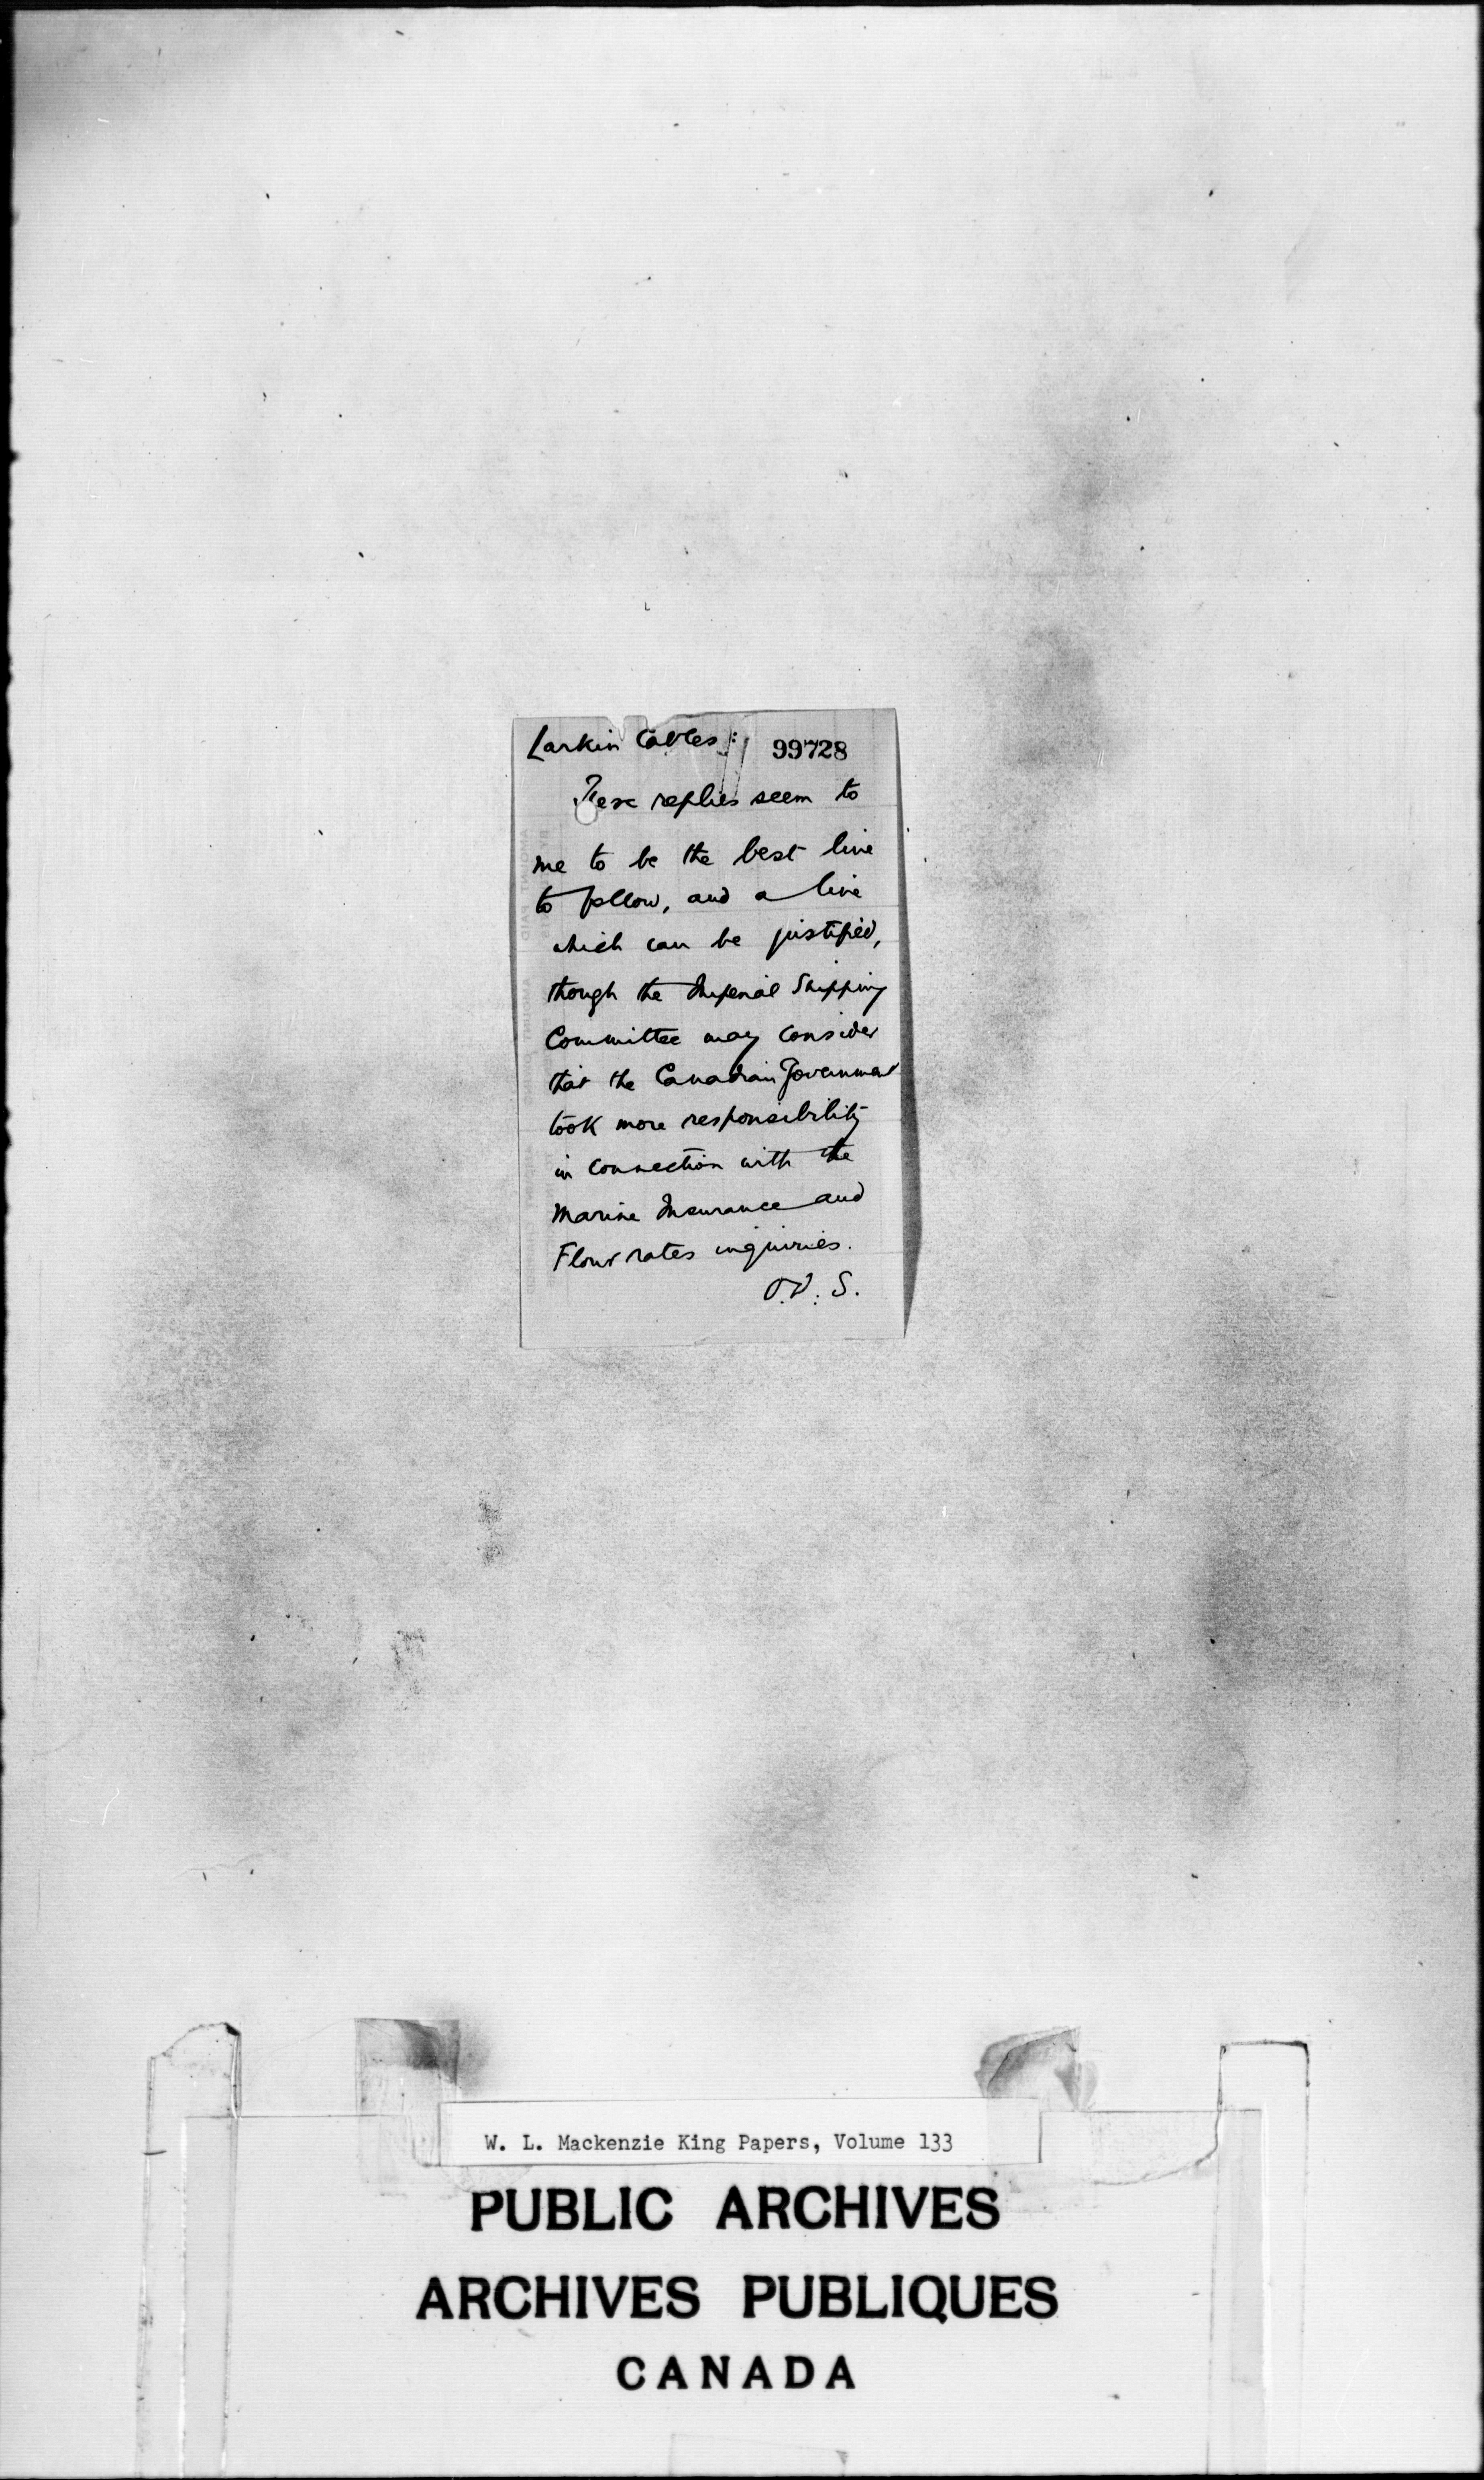 Larkin Cables: 99728
These replies seem to
me to be the best line
to follow, and a line
which can be justified,
though the Imperial Shipping
Committee may consider
that the Canadian Government
took more responsibility
in connection with the
Marine Insurance and
Flour rates inquiries.
O.D.S.
W. L. Mackenzie King Papers, Volume 133
PUBLIC ARCHIVES
ARCHIVES PUBLIQUES
CANADA